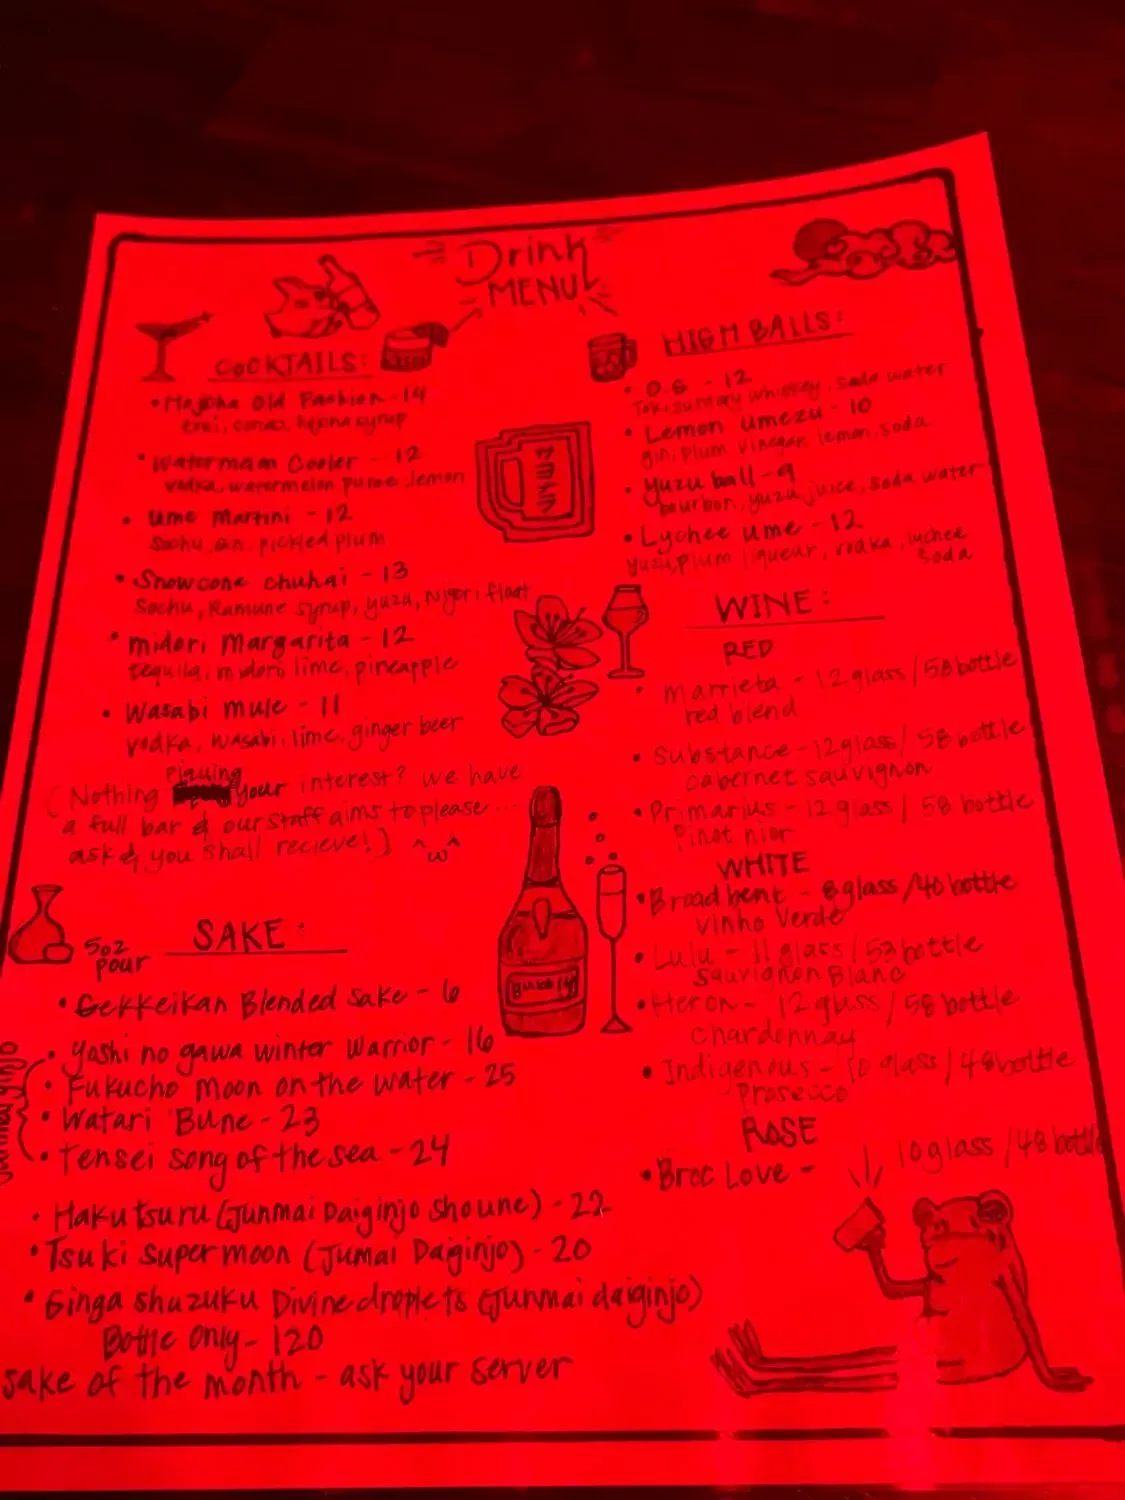 Drink
MENU
COCKTAILS:
• Hojicha Old Fashion - 14
syrup
• Watermelon Cooler - 12
vodka, watermelon puree, lemon
• Ume Martini - 12
Sochu, Gin, pickled plum
• Snowcone chuhai - 13
Sochu, Ramune syrup, yuzu, Nigori float
• midori Margarita - 12
tequila, midori, lime, pineapple
• Wasabi mule - 11
vodka, wasabi, lime, ginger beer
(Nothing piquing your interest? we have
a full bar & our staff aims to please...
ask & you shall recieve!) ^w^
SAKE:
5oz
pour
• Gekkeikan Blended Sake - 6
• Yoshi no gawa winter warrior - 16
• Fukucho moon on the water - 25
• Watari Bune - 23
• Tensei song of the sea - 24
• Hakutsuru (Junmai Daiginjo Shoune) - 22
• Tsuki Supermoon (Jumai Daiginjo) - 20
• Ginga Shuzuku Divine droplets (Junmai daiginjo)
Bottle Only - 120
sake of the month - ask your server
HIGH BALLS:
• O.G - 12
Toki suntory whiskey, soda water
• Lemon Umezu - 10
gin, plum vinegar, lemon, soda
• Yuzu ball - 9
bourbon, yuzu juice, soda water
• Lychee Ume - 12
yuzu, plum liqueur, vodka, lychee
soda
WINE:
RED
• Marrieta - 12 glass / 58 bottle
red blend
• Substance - 12 glass / 58 bottle
cabernet sauvignon
• Primarius - 12 glass / 58 bottle
Pinot nior
WHITE
• Broadbent - 8 glass / 40 bottle
Vinho Verde
• Lulu - 11 glass / 53 bottle
Sauvignon Blanc
• Heron - 12 glass / 58 bottle
Chardonnay
• Indigenous - 10 glass / 48 bottle
- Prosecco
ROSE
• Broc Love - 10 glass / 48 bottle